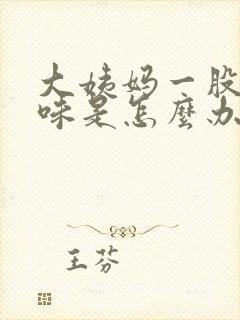 大姨妈一股
味是怎麼办
王芬